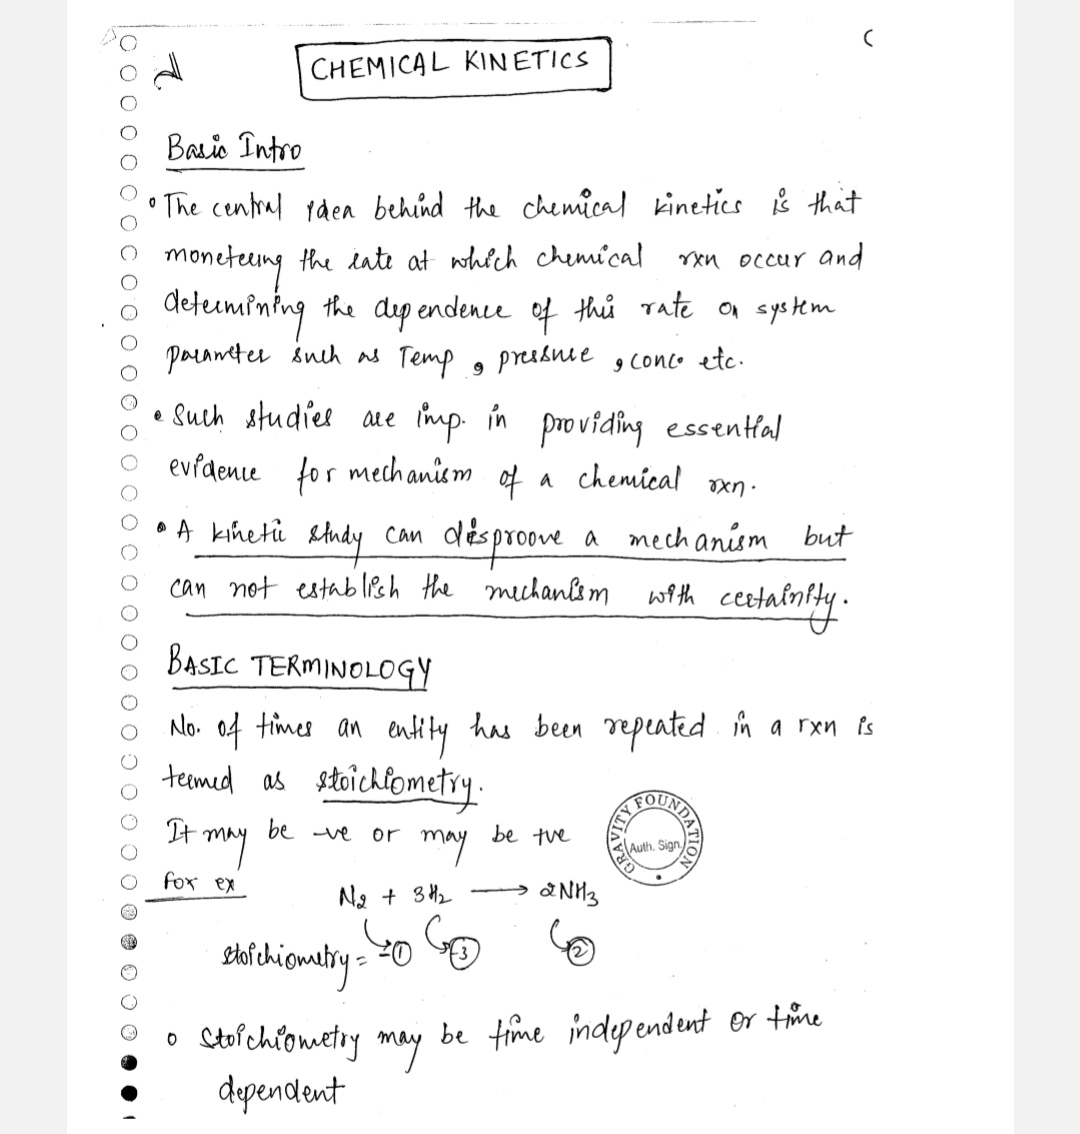 CHEMICAL KINETICS
Basic Intro
The central idea behind the chemical kinetics is that
moneteering the rate at which chemical rxn occur and
determining the dependence of this rate on system
parameter such as Temp, pressure, conc. etc.
Such studies are imp. in providing essential
evidence for mechanism of a chemical rxn.
A kinetic study can disproove a mechanism but
can not establish the mechanism with certainity.
BASIC TERMINOLOGY
No. of times an entity has been repeated in a rxn is
termed as stoichiometry.
It may be -ve or may be +ve
GRAVITY FOUNDATION
Auth. Sign.
for ex
N2 + 3H2 ⟶ 2NH3
stoichiometry = -1 -3 2
Stoichiometry may be time independent or time
dependent